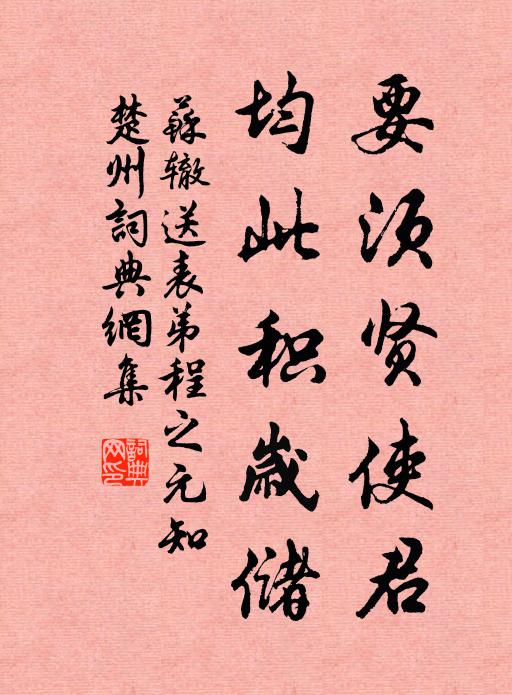 要须贤使君
均此积岁储
蘇辙送表弟程之元知
楚州詞典網集
詞典网印